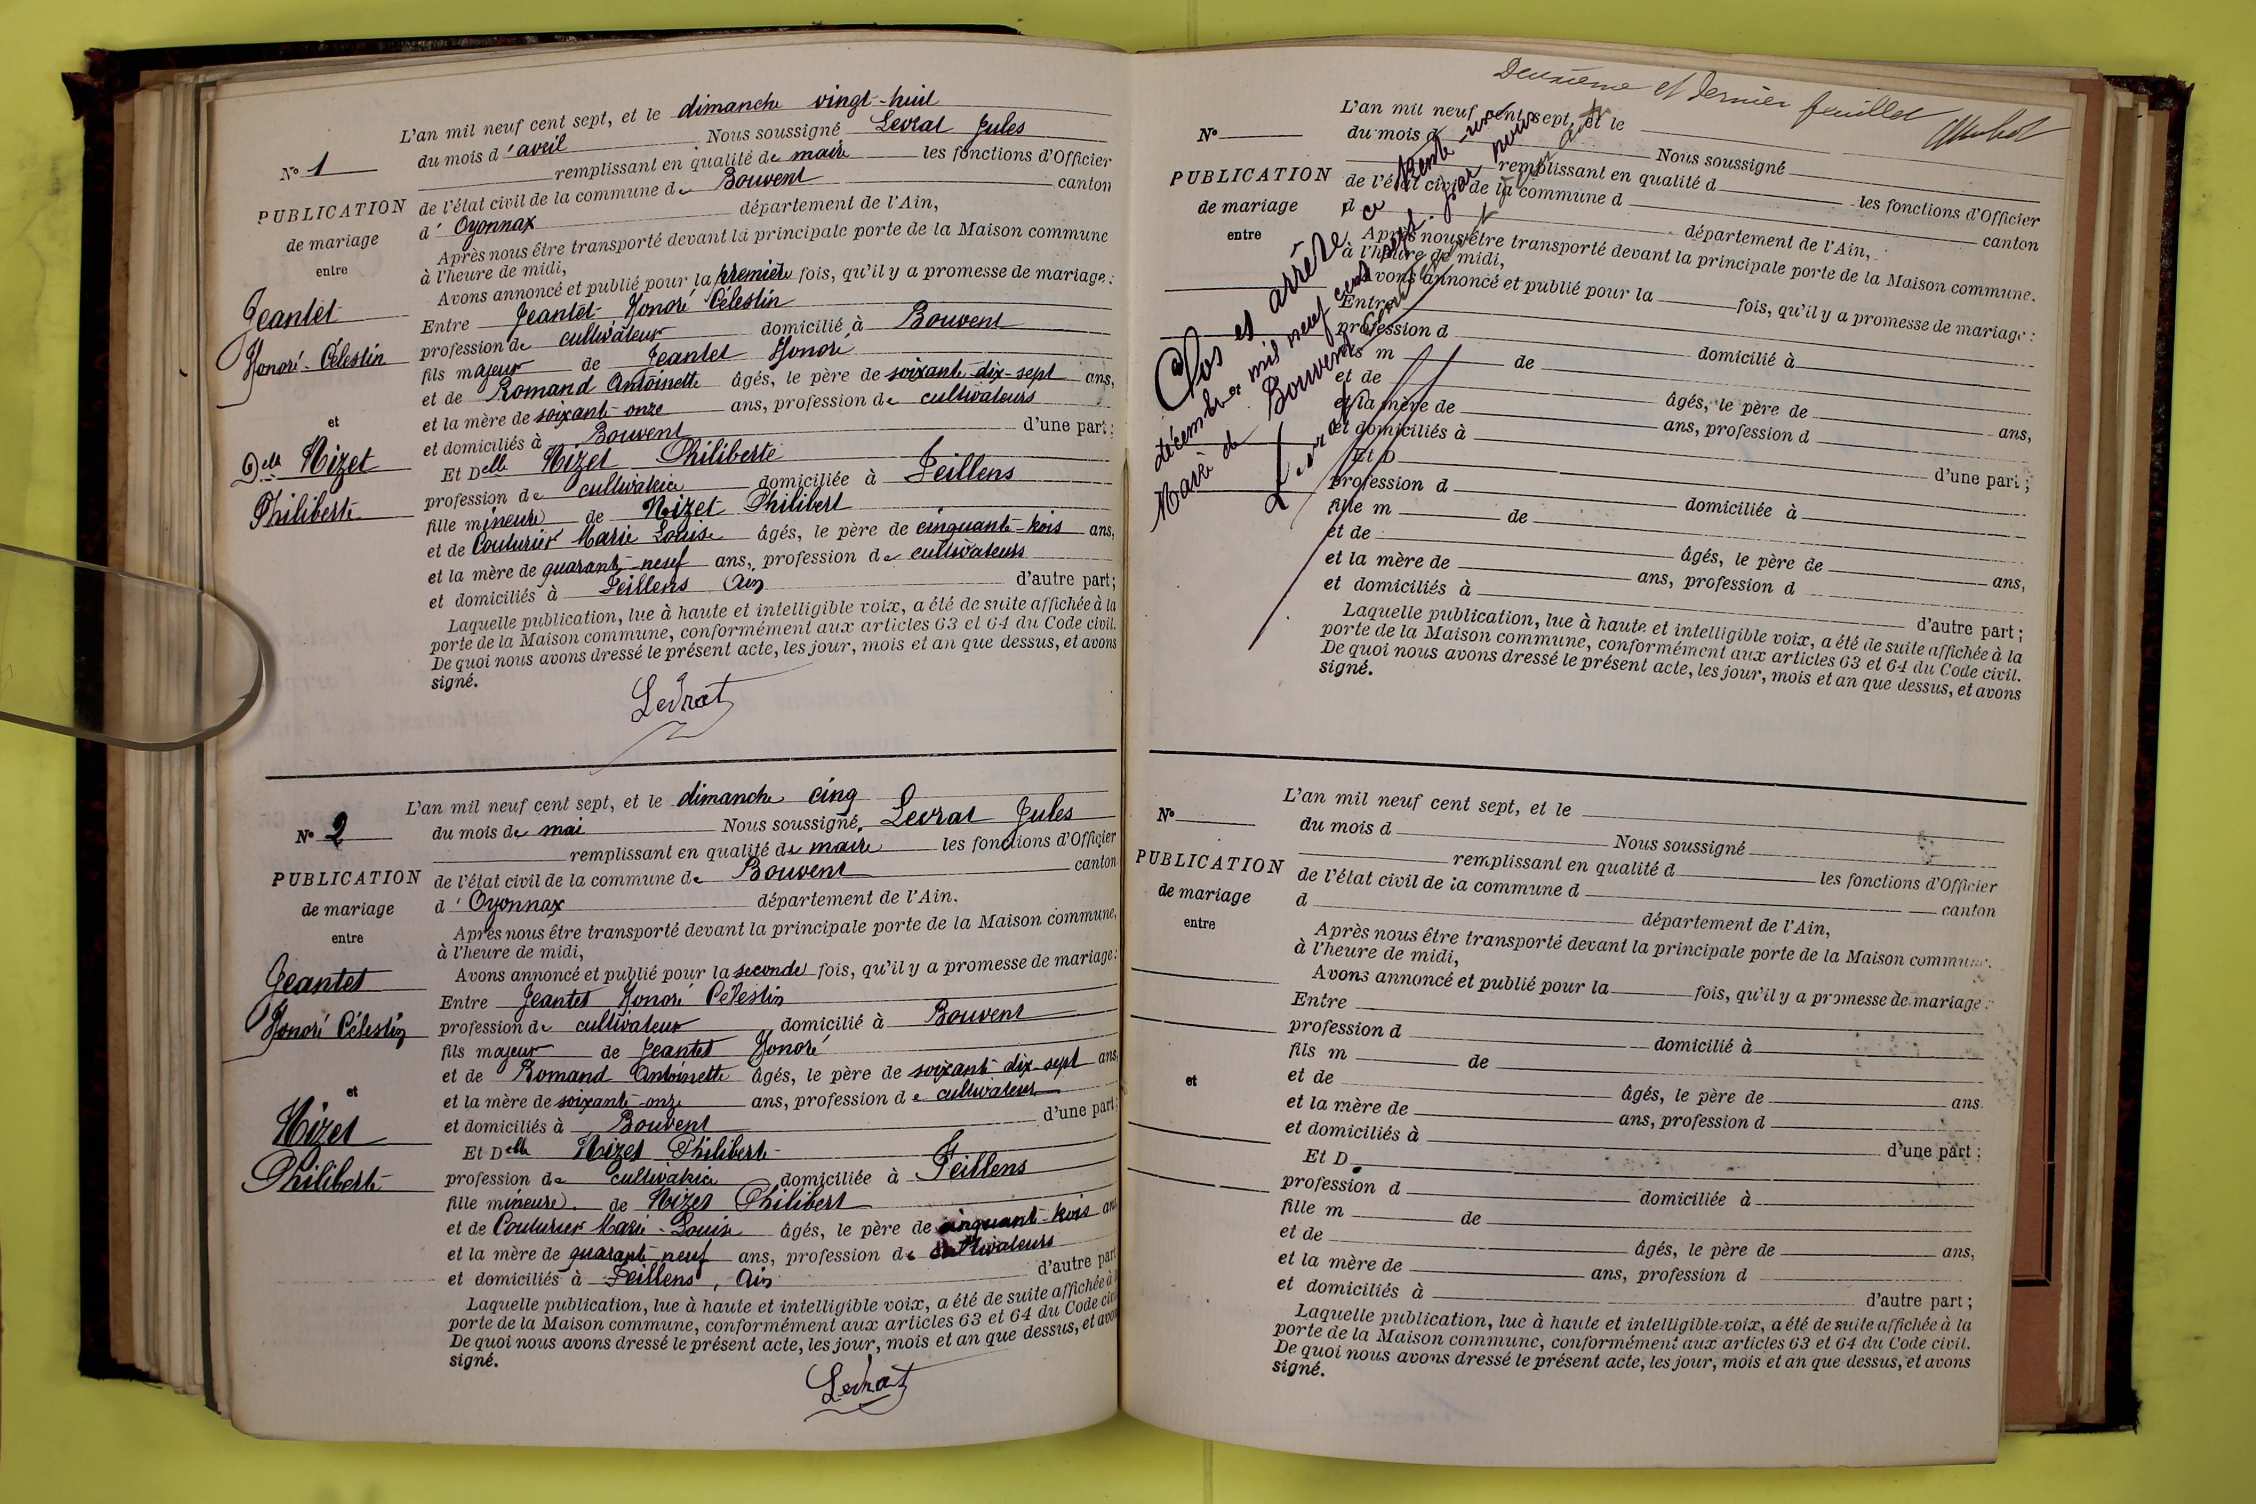 L'an mil neuf cent sept, et le dimanche vingt-huit
Nº 1
du mois d'avril Nous soussigné Levrat Jules
remplissant en qualité de maire les fonctions d'Officier
PUBLICATION
de l'état civil de la commune de Bouvent canton
de mariage
d'Oyonnax département de l'Ain,
entre
Après nous être transporté devant la principale porte de la Maison commune
à l'heure de midi,
Avons annoncé et publié pour la première fois, qu'il y a promesse de mariage:
Jeantet
Entre Jeantet Honoré Célestin
Honoré-Célestin
profession de cultivateur domicilié à Bouvent
fils majeur de Jeantet Honoré
et de Romand Antoinette âgés, le père de soixante-dix-sept ans,
et la mère de soixante-onze ans, profession de cultivateurs
et
et domiciliés à Bouvent d'une part;
Delle Nizet
Et Delle Nizet Philiberte
Philiberte
profession de cultivatrice domiciliée à Feillens
fille mineure de Nizet Philibert
et de Couturier Marie Louise âgés, le père de cinquante-trois ans,
et la mère de quarante-neuf ans, profession de cultivateurs
et domiciliés à Feillens Ain d'autre part;
Laquelle publication, lue à haute et intelligible voix, a été de suite affichée à la
porte de la Maison commune, conformément aux articles 63 et 64 du Code civil.
De quoi nous avons dressé le présent acte, les jour, mois et an que dessus, et avons
signé.
Levrat
L'an mil neuf cent sept, et le dimanche cinq
Nº 2
du mois de mai Nous soussigné, Levrat Jules
remplissant en qualité de maire les fonctions d'Officier
PUBLICATION
de l'état civil de la commune de Bouvent canton
de mariage
d'Oyonnax département de l'Ain.
entre
Après nous être transporté devant la principale porte de la Maison commune,
à l'heure de midi,
Avons annoncé et publié pour la seconde fois, qu'il y a promesse de mariage:
Jeantet
Entre Jeantet Honoré Célestin
Honoré Célestin
profession de cultivateur domicilié à Bouvent
fils majeur de Jeantet Honoré
et de Romand Antoinette âgés, le père de soixante-dix-sept ans,
et la mère de soixante-onze ans, profession de cultivateurs
et
et domiciliés à Bouvent d'une part;
Nizet
Et Delle Nizet Philiberte
Philiberte
profession de cultivatrice domiciliée à Feillens
fille mineure de Nizet Philibert
et de Couturier Marie-Louise âgés, le père de cinquante-trois ans
et la mère de quarante neuf ans, profession de cultivateurs
et domiciliés à Feillens, Ain d'autre part
Laquelle publication, lue à haute et intelligible voix, a été de suite affichée à la
porte de la Maison commune, conformément aux articles 63 et 64 du Code civil
De quoi nous avons dressé le présent acte, les jour, mois et an que dessus, et avons
signé.
Levrat
Deuxième et dernier feuillet
L'an mil neuf cent sept, et le
Nº
du mois d Nous soussigné
remplissant en qualité d les fonctions d'Officier
PUBLICATION
de l'état civil de la commune d canton
de mariage
d département de l'Ain,
entre
Après nous être transporté devant la principale porte de la Maison commune.
à l'heure de midi,
Avons annoncé et publié pour la fois, qu'il y a promesse de mariage:
Entre
profession d domicilié à
fils m de
et de âgés, le père de ans,
et la mère de ans, profession d
et domiciliés à d'une part;
Et D
profession d domiciliée à
fille m de
et de âgés, le père de ans,
et la mère de ans, profession d
et domiciliés à d'autre part;
Laquelle publication, lue à haute et intelligible voix, a été de suite affichée à la
porte de la Maison commune, conformément aux articles 63 et 64 du Code civil.
De quoi nous avons dressé le présent acte, les jour, mois et an que dessus, et avons
signé.
Clos et arrêté ce trente-un
décembre mil neuf cent sept par nous
Maire de Bouvent
Levrat
L'an mil neuf cent sept, et le
Nº
du mois d Nous soussigné
remplissant en qualité d les fonctions d'Officier
PUBLICATION
de l'état civil de la commune d canton
de mariage
d département de l'Ain,
entre
Après nous être transporté devant la principale porte de la Maison commune.
à l'heure de midi,
Avons annoncé et publié pour la fois, qu'il y a promesse de mariage:
Entre
profession d domicilié à
fils m de
et
et de âgés, le père de ans
et la mère de ans, profession d
et domiciliés à d'une part;
Et D
profession d domiciliée à
fille m de
et de âgés, le père de ans,
et la mère de ans, profession d
et domiciliés à d'autre part;
Laquelle publication, lue à haute et intelligible voix, a été de suite affichée à la
porte de la Maison commune, conformément aux articles 63 et 64 du Code civil.
De quoi nous avons dressé le présent acte, les jour, mois et an que dessus, et avons
signé.